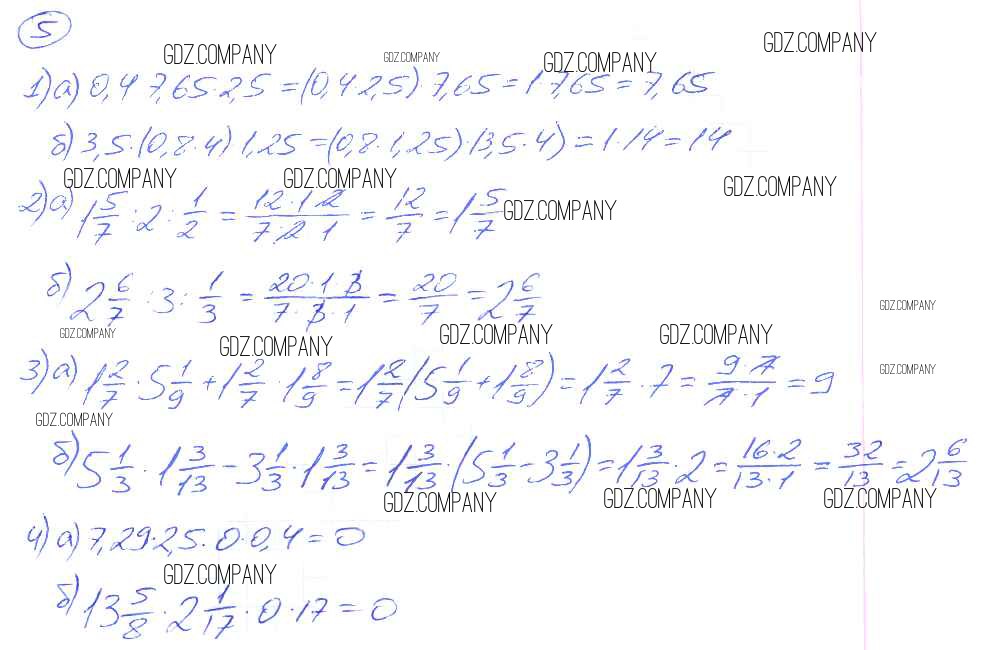 5
GDZ.COMPANY GDZ.COMPANY GDZ.COMPANY GDZ.COMPANY
1) а) 0,4 · 7,65 · 2,5 = (0,4 · 2,5) · 7,65 = 1 · 7,65 = 7,65
б) 3,5 · (0,8 · 4) 1,25 = (0,8 · 1,25) · (3,5 · 4) = 1 · 14 = 14
GDZ.COMPANY GDZ.COMPANY GDZ.COMPANY
2) а) 1 5/7 : 2 : 1/2 = 12·1·2/7·2·1 = 12/7 = 1 5/7 GDZ.COMPANY
б) 2 6/7 : 3 : 1/3 = 20·1·3/7·3·1 = 20/7 = 2 6/7
GDZ.COMPANY
GDZ.COMPANY GDZ.COMPANY GDZ.COMPANY GDZ.COMPANY
3) а) 1 2/7 · 5 1/9 + 1 2/7 · 1 8/9 = 1 2/7 (5 1/9 + 1 8/9) = 1 2/7 · 7 = 9·7/7·1 = 9
GDZ.COMPANY
GDZ.COMPANY
б) 5 1/3 · 1 3/13 − 3 1/3 · 1 3/13 = 1 3/13 · (5 1/3 − 3 1/3) = 1 3/13 · 2 = 16·2/13·1 = 32/13 = 2 6/13
GDZ.COMPANY GDZ.COMPANY GDZ.COMPANY
4) а) 7,29 · 2,5 · 0 · 0,4 = 0
GDZ.COMPANY
б) 13 5/8 · 2 1/17 · 0 · 17 = 0